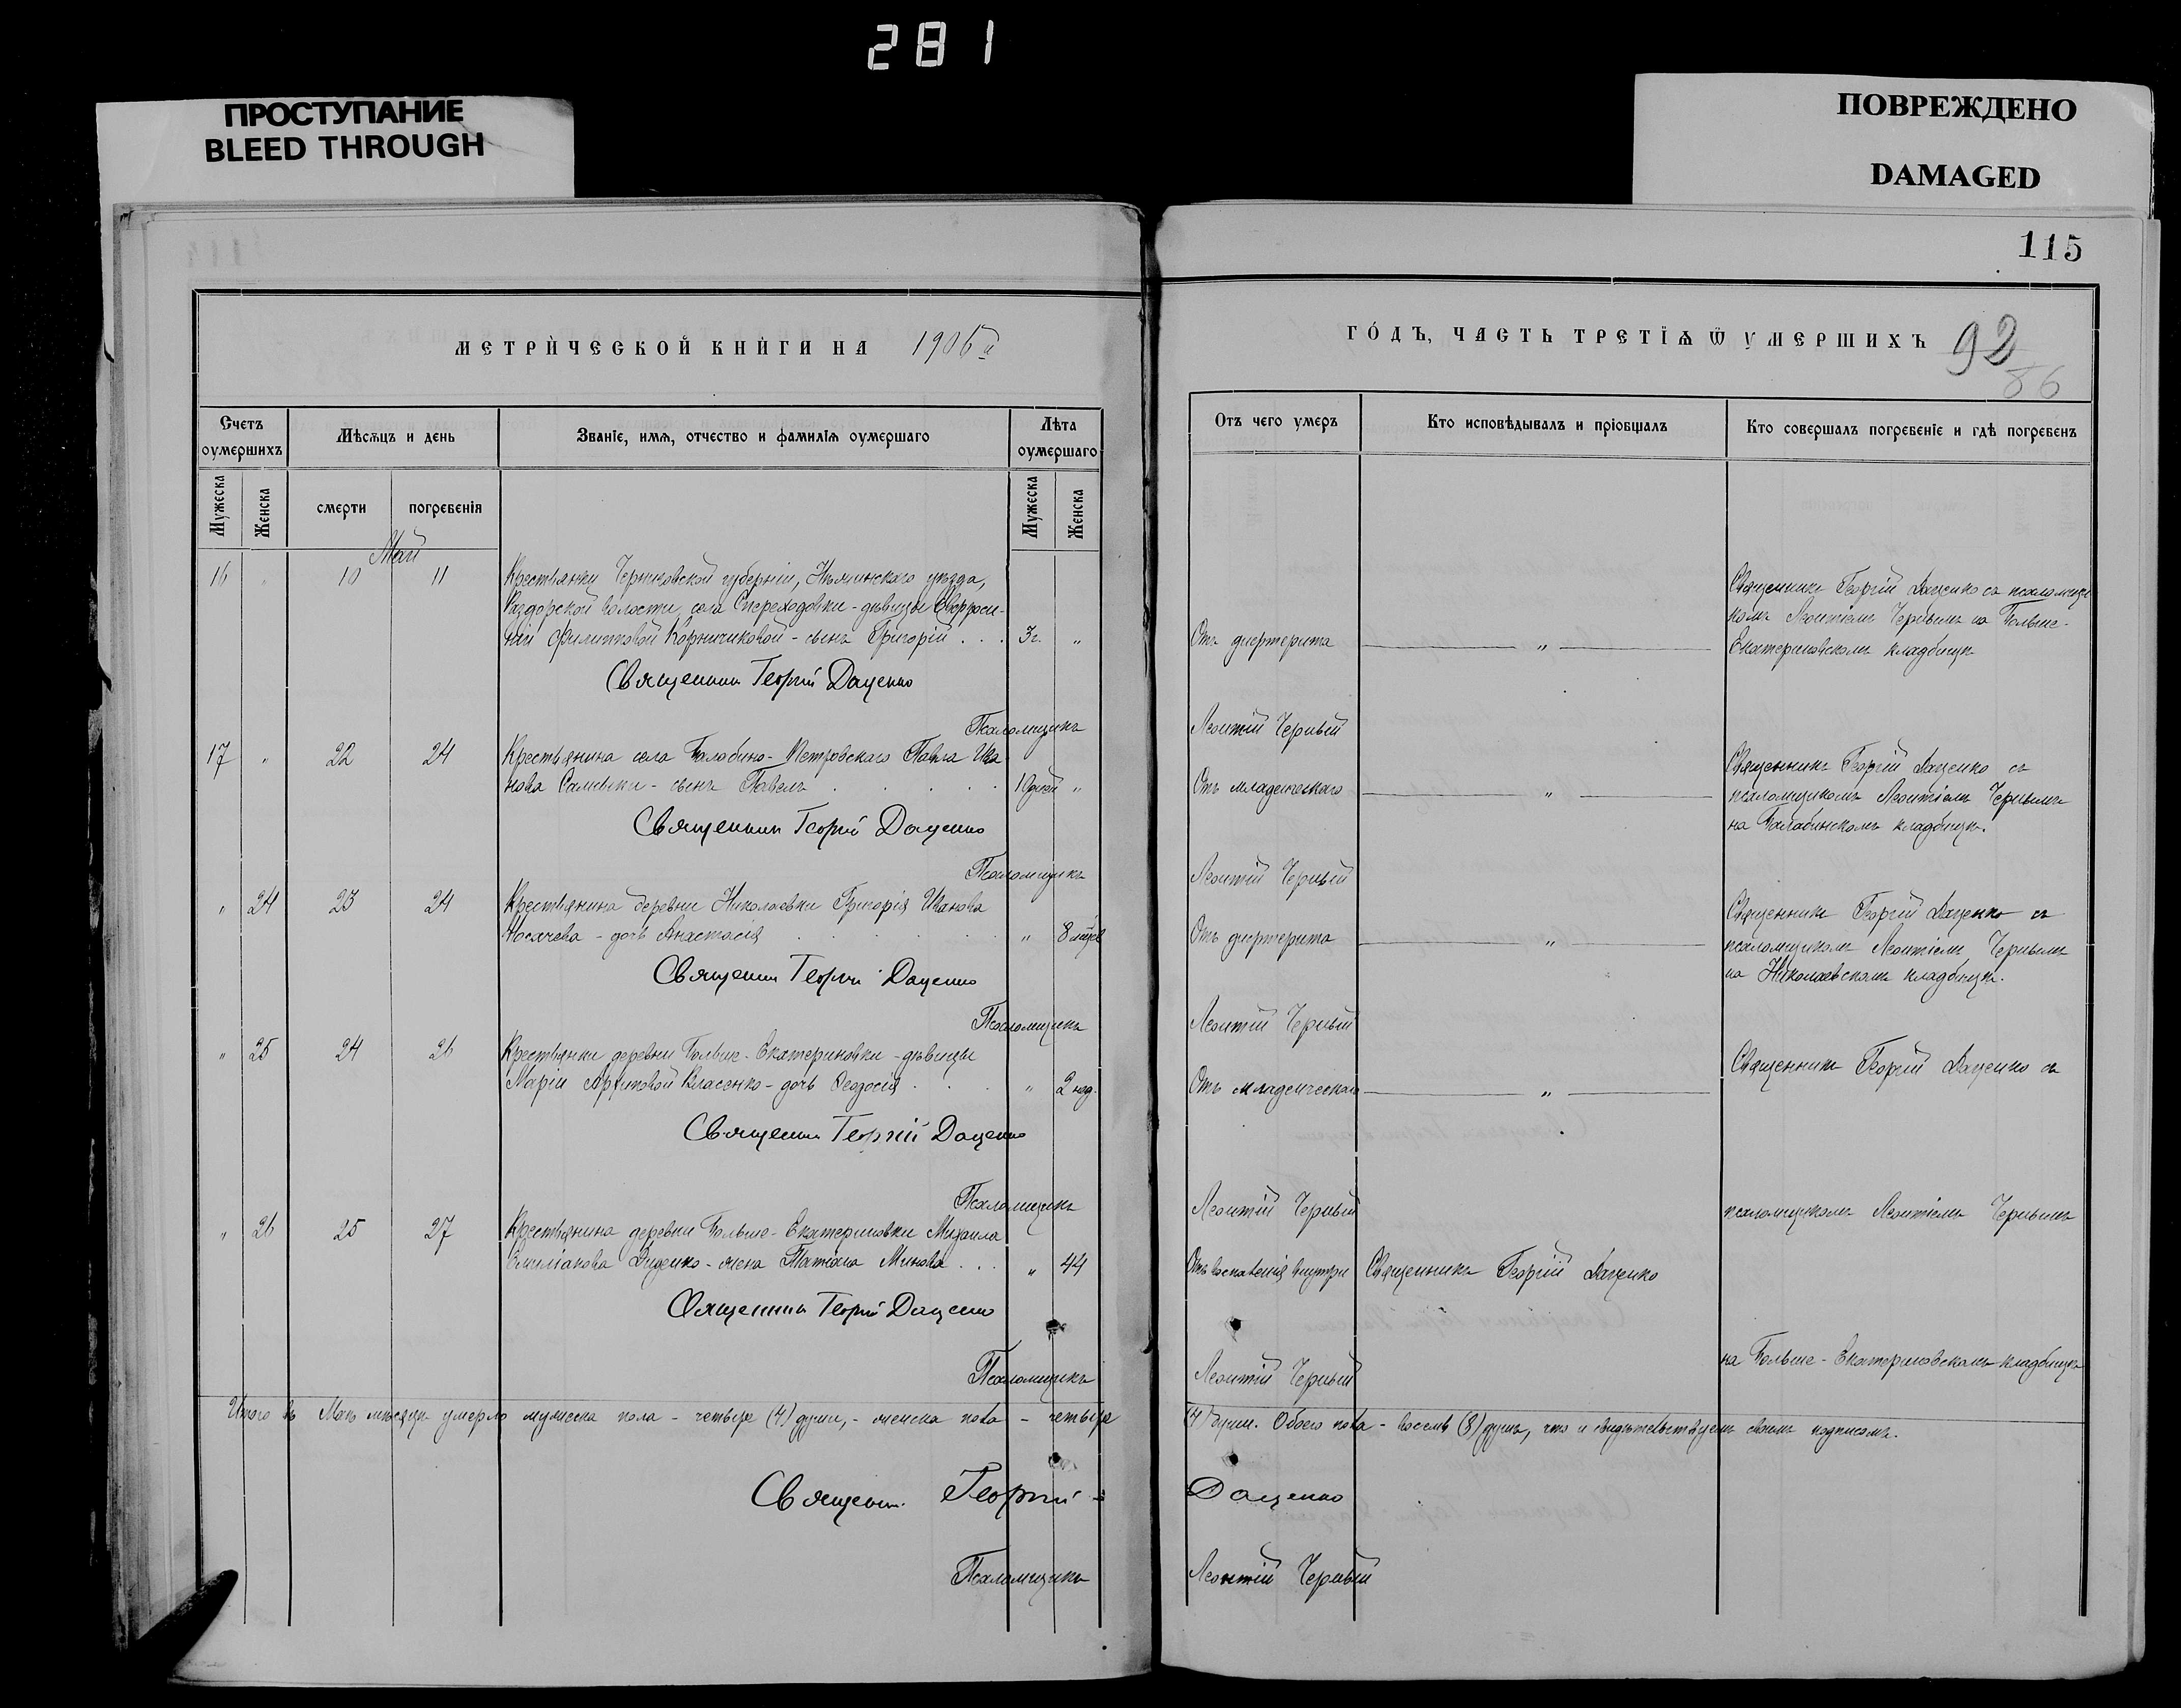 281
ПРОСТУПАНИЕ
BLEED THROUGH
ПОВРЕЖДЕНО
DAMAGED
115
МЕТРИ́ЧЕСКОЙ КНИ́ГИ НА 1906й
Счетъ оумершихъ
Мѣсѧцъ и день
Званіе, имѧ, отчество и фамиліѧ оумершаго
Лѣта оумершаго
Мужеска
Женска
смерти
погребенія
Мужеска
Женска
Май
16 " 10 11 Крестьянки Черниговской губерніи, уѣзда,
волости, села - дѣвицы Евфроси-
ніи Филипповой - сынъ Григорій . . . 3г. "
Священникъ Георгій Даценко
Псаломщикъ
17 " 22 24 Крестьянина села Балабино-Петровскаго Павла Ива
нова - сынъ Павелъ . . . . . 10дней "
Священникъ Георгій Даценко
Псаломщикъ
" 24 23 24 Крестьянина деревни Николаевки Григорія Иванова
Носачева - дочь Анастасія . . . . . " 8 мѣсе
Священникъ Георгій Даценко
Псаломщикъ
" 25 24 26 Крестьянки деревни Больше-Екатериновки - дѣвицы
Маріи Архиповой Власенко - дочь Ѳеодосія . . . " 2 нед.
Священникъ Георгій Даценко
Псаломщикъ
" 26 25 27 Крестьянина деревни Больше-Екатериновки Михаила
Емиліанова Диденко - жена Татіана Минова . . . " 44
Священникъ Георгій Даценко
Псаломщикъ
Итого въ Маѣ мѣсяцѣ умерло мужеска пола - четыре (4) души, - женска пола - четыре
Священн. Георгій
Псаломщикъ
ГО́ДЪ, ЧАСТЬ ТРЕТІѦ Ѿ УМЕРШИХЪ 92
86
Отъ чего умеръ
Кто исповѣдывалъ и пріобщалъ
Кто совершалъ погребеніе и гдѣ погребенъ
Отъ дифтерита "
Священникъ Георгій Даценко съ псаломщи
комъ Леонтіемъ Чернымъ на Больше-
Екатериновскомъ кладбищѣ
Леонтій Черный
Отъ младенческаго "
Священникъ Георгій Даценко съ
псаломщикомъ Леонтіемъ Чернымъ
на Балабинскомъ кладбищѣ.
Леонтій Черный
Отъ дифтерита "
Священникъ Георгій Даценко съ
псаломщикомъ Леонтіемъ Чернымъ
на Николаевскомъ кладбищѣ.
Леонтій Черный
Отъ младенческаго "
Священникъ Георгій Даценко съ
Леонтій Черный
псаломщикомъ Леонтіемъ Чернымъ
Отъ воспаленія внутри Священникъ Георгій Даценко
на Больше-Екатериновскомъ кладбищѣ
Леонтій Черный
(4) души. Обоего пола - восемь (8) душъ, что и свидѣтельствуемъ своимъ подписомъ.
Даценко
Леонтій Черный